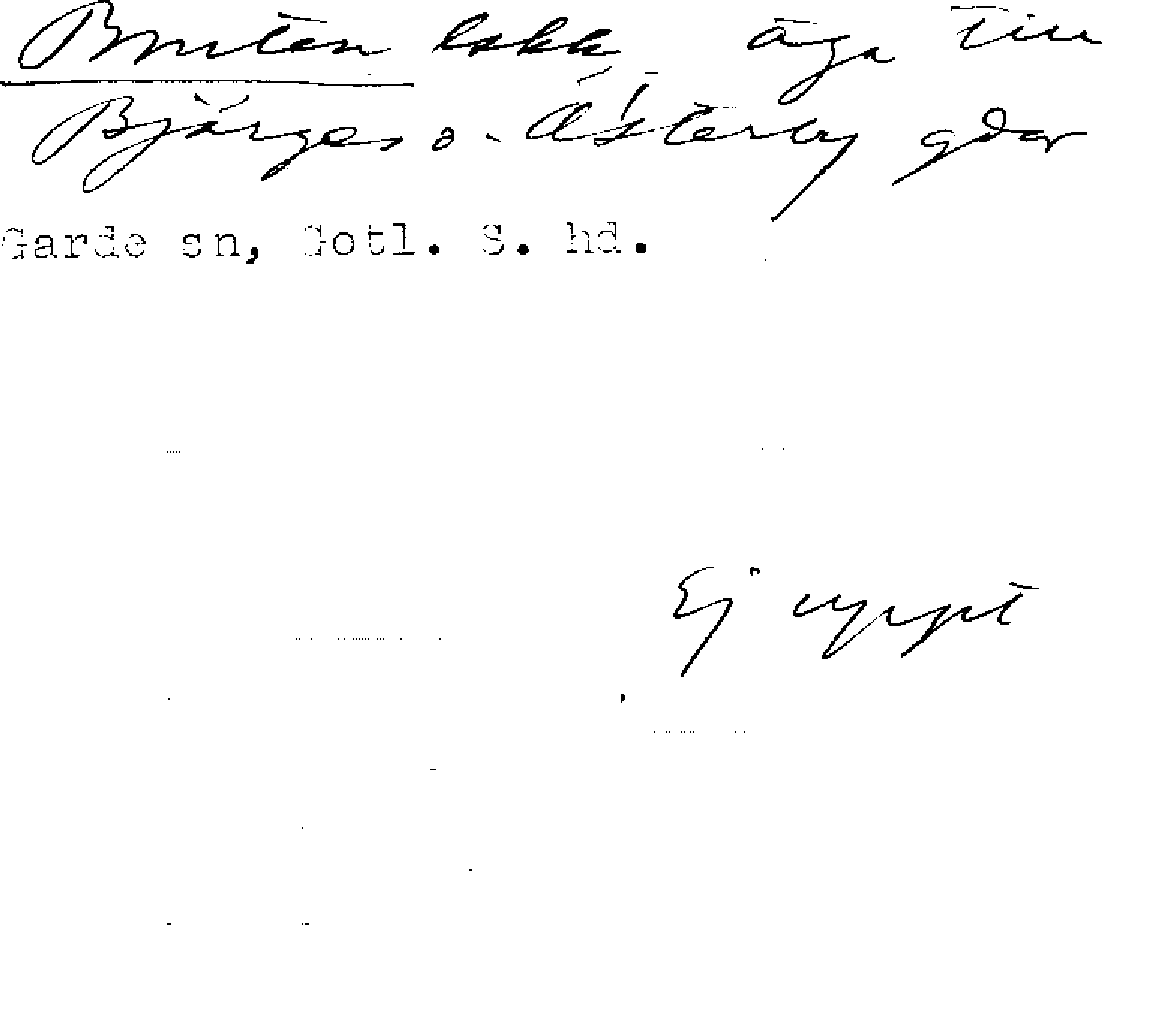 Bruten lakk äga till
Bjärges o. Österby gdar
Garde sn, Gotl. S. hd.
Ej uppt